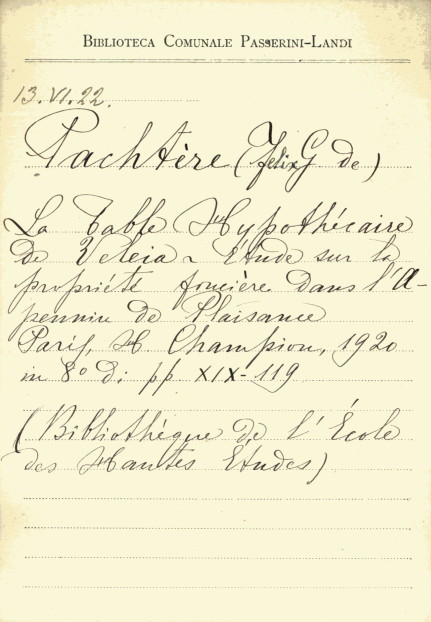 BIBLIOTECA COMUNALE PASSERINI-LANDI
13.VI.22.
Pachtère (Felix G de)
La Table Hypothécaire
de Veleia - Étude sur la
propriété foncière dans l'A-
pennin de Plaisance
Paris, H Champion, 1920
in 8º di pp XIX-119
(Bibliothèque de l'École
des Hautes Études)